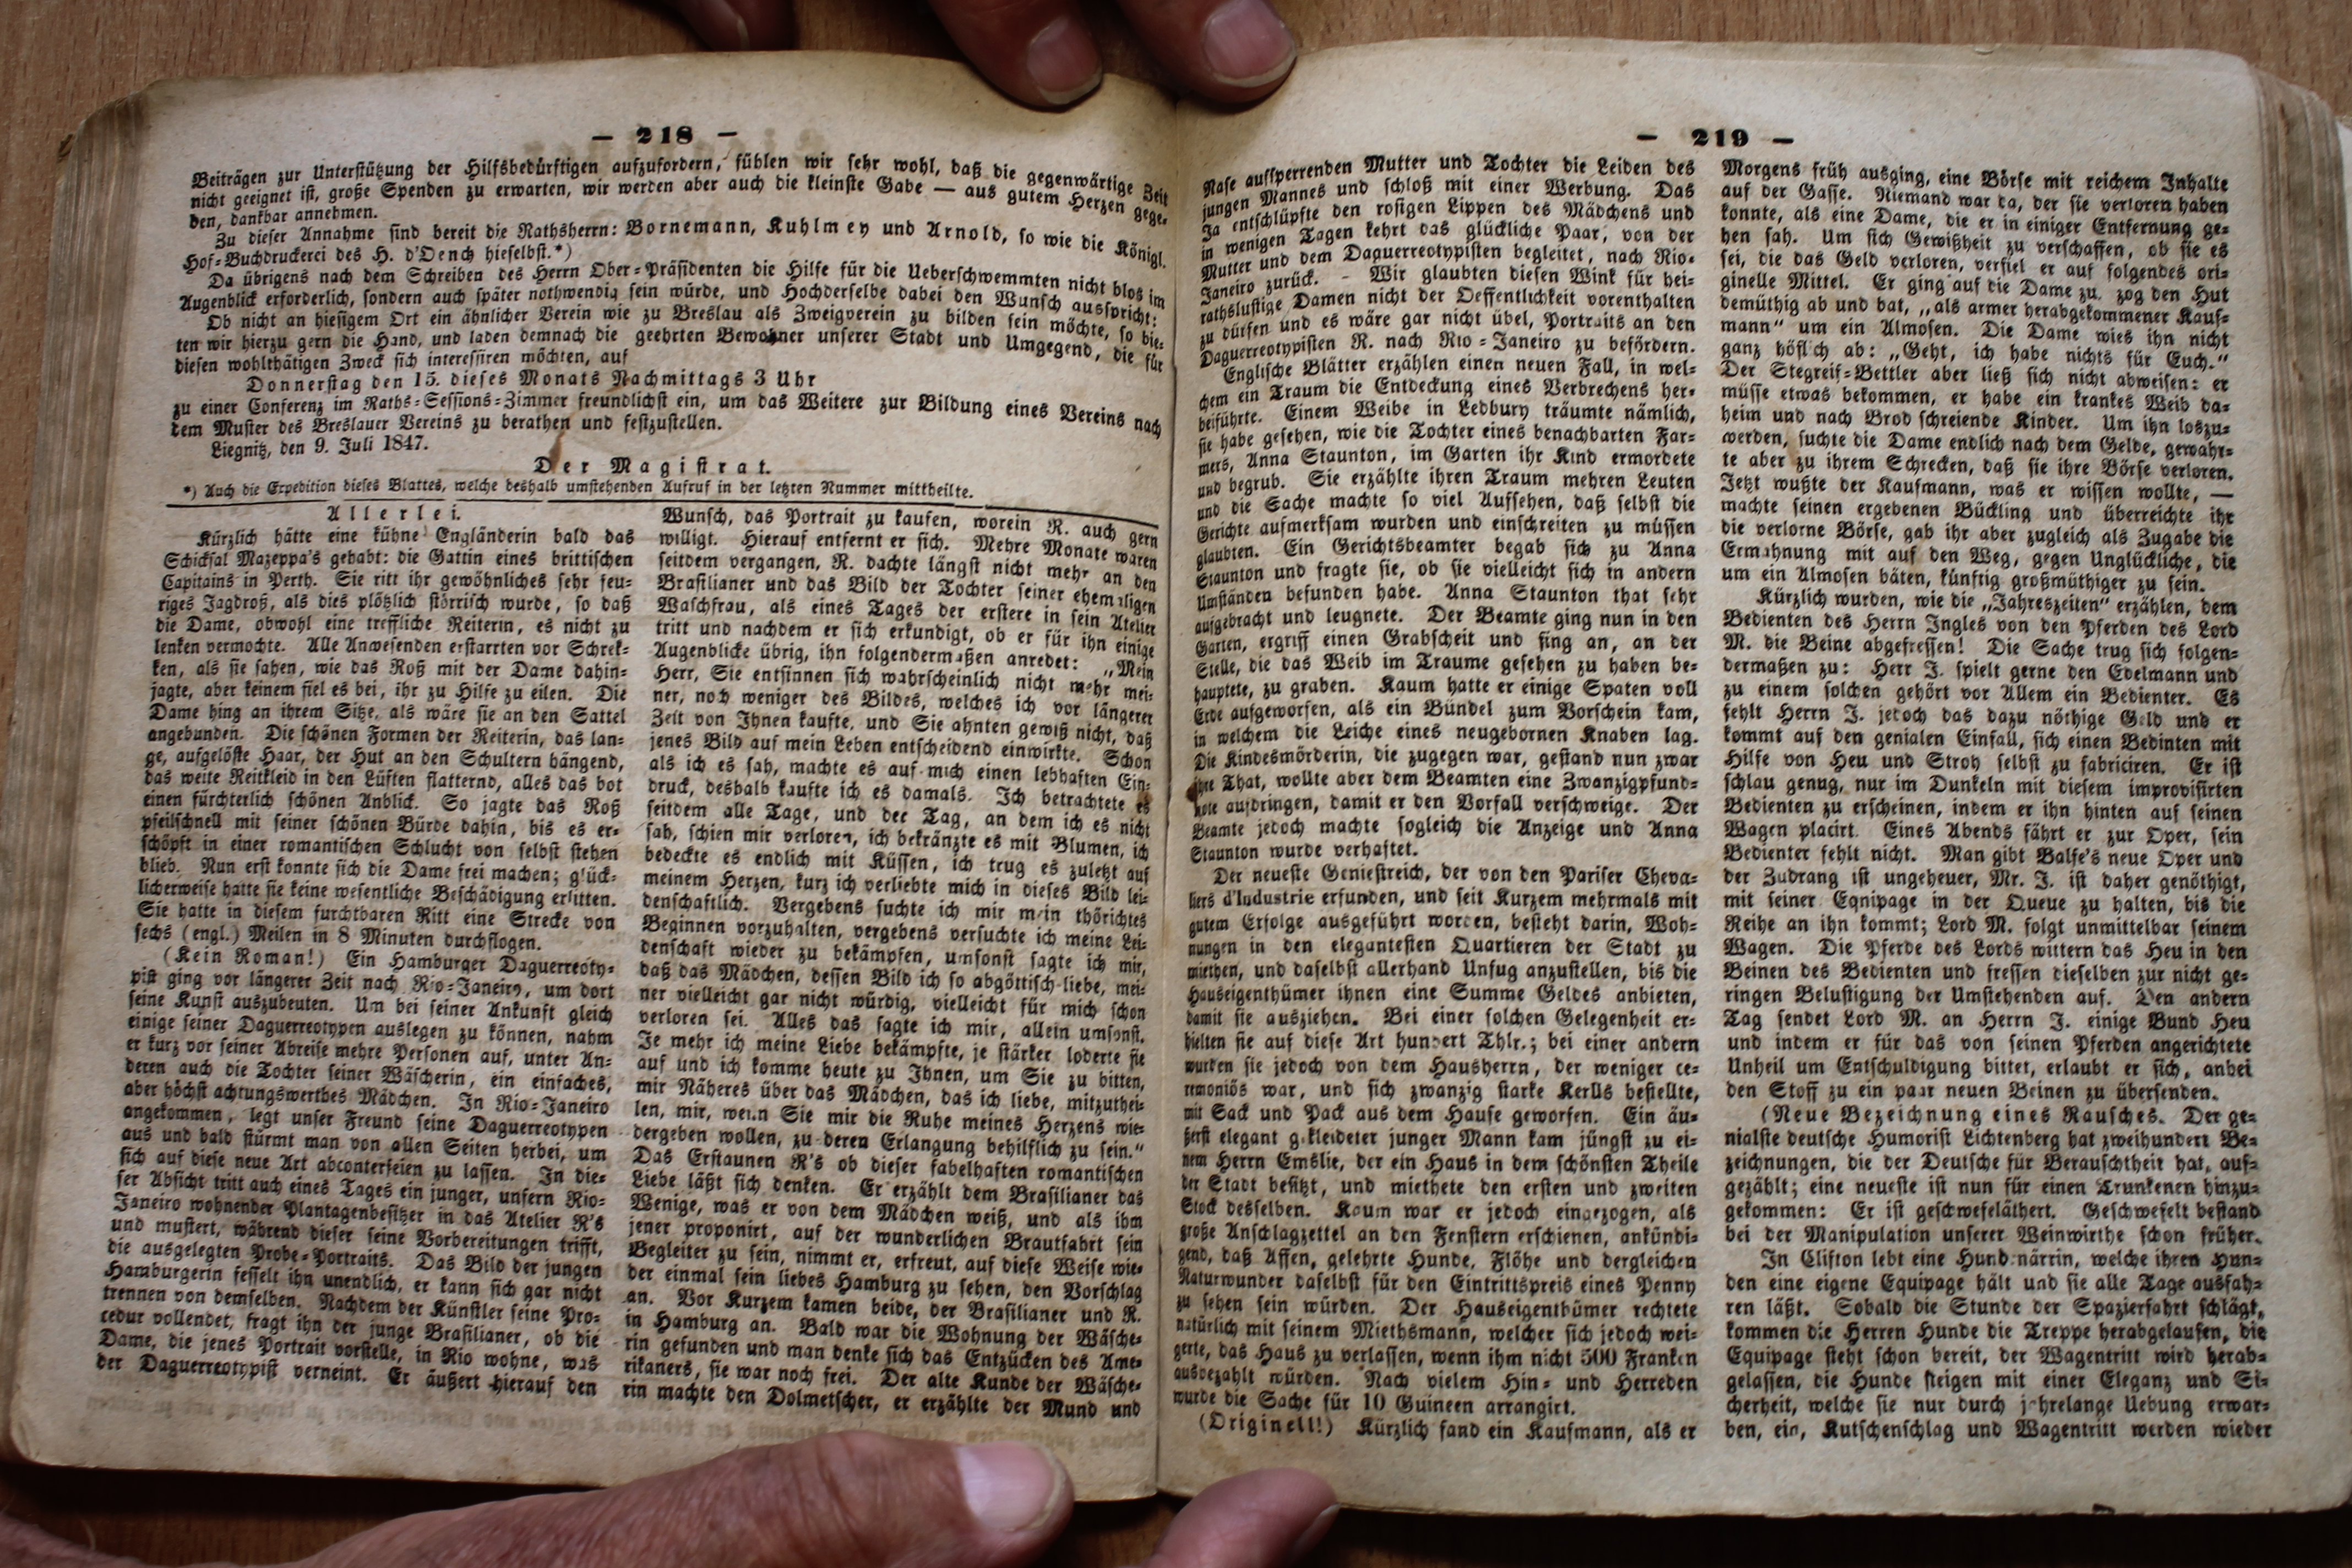 — 218 —
Beiträgen zur Unterstützung der Hilfsbedürftigen aufzufordern, fühlen wir sehr wohl, daß die gegenwärtige Zeit
nicht geeignet ist, große Spenden zu erwarten, wir werden aber auch die kleinste Gabe — aus gutem Herzen gege-
den, dankbar annehmen.
Zu dieser Annahme sind bereit die Rathsherrn: Bornemann, Kuhlmey und Arnold, so wie die Königl.
Hof-Buchdruckerei des H. d'Oench hieselbst.*)
Da übrigens nach dem Schreiben des Herrn Ober-Präsidenten die Hilfe für die Ueberschwemmten nicht blos im
Augenblick erforderlich, sondern auch später nothwendig sein würde, und Hochderselbe dabei den Wunsch ausspricht:
Ob nicht an hiesigem Ort ein ähnlicher Verein wie zu Breslau als Zweigverein zu bilden sein möchte, so bie-
ten wir hierzu gern die Hand, und laden demnach die geehrten Bewohner unserer Stadt und Umgegend, die für
diesen wohlthätigen Zweck sich interessiren möchten, auf
Donnerstag den 15. dieses Monats Nachmittags 3 Uhr
zu einer Conferenz im Raths-Sessions-Zimmer freundlichst ein, um das Weitere zur Bildung eines Vereins nach
dem Muster des Breslauer Vereins zu berathen und festzustellen.
Liegnitz, den 9. Juli 1847.
Der Magistrat.
*) Auch die Expedition dieses Blattes, welche deshalb umstehenden Aufruf in der letzten Nummer mittheilte.
Allerlei.
Kürzlich hätte eine kühne Engländerin bald das
Schicksal Mazeppa's gehabt: die Gattin eines brittischen
Capitains in Perth. Sie ritt ihr gewöhnliches sehr feu-
riges Jagdroß, als dies plötzlich störrisch wurde, so daß
die Dame, obwohl eine treffliche Reiterin, es nicht zu
lenken vermochte. Alle Anwesenden erstarrten vor Schrek-
ken, als sie sahen, wie das Roß mit der Dame dahin-
jagte, aber keinem fiel es bei, ihr zu Hilfe zu eilen. Die
Dame hing an ihrem Sitze, als wäre sie an den Sattel
angebunden. Die schönen Formen der Reiterin, das lan-
ge, aufgelöste Haar, der Hut an den Schultern hängend,
das weite Reitkleid in den Lüften flatternd, alles das bot
einen fürchterlich schönen Anblick. So jagte das Roß
pfeilschnell mit seiner schönen Bürde dahin, bis es er-
schöpft in einer romantischen Schlucht von selbst stehen
blieb. Nun erst konnte sich die Dame frei machen; glück-
licherweise hatte sie keine wesentliche Beschädigung erlitten.
Sie hatte in diesem furchtbaren Ritt eine Strecke von
sechs (engl.) Meilen in 8 Minuten durchflogen.
(Kein Roman!) Ein Hamburger Daguerreoty-
pist ging vor längerer Zeit nach Rio-Janeiro, um dort
seine Kunst auszubeuten. Um bei seiner Ankunft gleich
einige seiner Daguerreotypen auslegen zu können, nahm
er kurz vor seiner Abreise mehre Personen auf, unter An-
deren auch die Tochter seiner Wäscherin, ein einfaches,
aber höchst achtungswerthes Mädchen. In Rio-Janeiro
angekommen, legt unser Freund seine Daguerreotypen
aus und bald stürmt man von allen Seiten herbei, um
sich auf diese neue Art abconterfeien zu lassen. In die-
ser Absicht tritt auch eines Tages ein junger, unsern Rio-
Janeiro wohnender Plantagenbesitzer in das Atelier R's
und mustert, während dieser seine Vorbereitungen trifft,
die ausgelegten Probe-Portraits. Das Bild der jungen
Hamburgerin fesselt ihn unendlich, er kann sich gar nicht
trennen von demselben. Nachdem der Künstler seine Pro-
cedur vollendet, fragt ihn der junge Brasilianer, ob die
Dame, die jenes Portrait vorstelle, in Rio wohne, was
der Daguerreotypist verneint. Er äußert hierauf den
Wunsch, das Portrait zu kaufen, worein R. auch gern
willigt. Hierauf entfernt er sich. Mehre Monate waren
seitdem vergangen, R. dachte längst nicht mehr an den
Brasilianer und das Bild der Tochter seiner ehemaligen
Waschfrau, als eines Tages der erstere in sein Atelier
tritt und nachdem er sich erkundigt, ob er für ihn einige
Augenblicke übrig, ihn folgendermaßen anredet: „Mein
Herr, Sie entsinnen sich wahrscheinlich nicht mehr mei-
ner, noch weniger des Bildes, welches ich vor längerer
Zeit von Ihnen kaufte, und Sie ahnten gewiß nicht, daß
jenes Bild auf mein Leben entscheidend einwirkte. Schon
als ich es sah, machte es auf mich einen lebhaften Ein-
druck, deshalb kaufte ich es damals. Ich betrachtete es
seitdem alle Tage, und der Tag, an dem ich es nicht
sah, schien mir verloren, ich bekränzte es mit Blumen, ich
bedeckte es endlich mit Küssen, ich trug es zuletzt auf
meinem Herzen, kurz ich verliebte mich in dieses Bild lei-
denschaftlich. Vergebens suchte ich mir mein thörichtes
Beginnen vorzuhalten, vergebens versuchte ich meine Lei-
denschaft wieder zu bekämpfen, umsonst sagte ich mir,
daß das Mädchen, dessen Bild ich so abgöttisch liebe, mei-
ner vielleicht gar nicht würdig, vielleicht für mich schon
verloren sei. Alles das sagte ich mir, allein umsonst.
Je mehr ich meine Liebe bekämpfte, je stärker loderte sie
auf und ich komme heute zu Ihnen, um Sie zu bitten,
mir Näheres über das Mädchen, das ich liebe, mitzuthei-
len, mir, wenn Sie mir die Ruhe meines Herzens wie-
dergeben wollen, zu deren Erlangung behilflich zu sein.“
Das Erstaunen R's ob dieser fabelhaften romantischen
Liebe läßt sich denken. Er erzählt dem Brasilianer das
Wenige, was er von dem Mädchen weiß, und als ihm
jener proponirt, auf der wunderlichen Brautfahrt sein
Begleiter zu sein, nimmt er, erfreut, auf diese Weise wie-
der einmal sein liebes Hamburg zu sehen, den Vorschlag
an. Vor Kurzem kamen beide, der Brasilianer und R.
in Hamburg an. Bald war die Wohnung der Wäsche-
rin gefunden und man denke sich das Entzücken des Ame-
rikaners, sie war noch frei. Der alte Kunde der Wäsche-
rin machte den Dolmetscher, er erzählte der Mund und
— 219 —
Nase aufsperrenden Mutter und Tochter die Leiden des
jungen Mannes und schloß mit einer Werbung. Das
Ja entschlüpfte den rosigen Lippen des Mädchens und
in wenigen Tagen kehrt das glückliche Paar, von der
Mutter und dem Daguerreotypisten begleitet, nach Rio-
Janeiro zurück. - Wir glaubten diesen Wink für hei-
rathslustige Damen nicht der Oeffentlichkeit vorenthalten
zu dürfen und es wäre gar nicht übel, Portraits an den
Daguerreotypisten R. nach Rio-Janeiro zu befördern.
Englische Blätter erzählen einen neuen Fall, in wel-
chem ein Traum die Entdeckung eines Verbrechens her-
beiführte. Einem Weibe in Ledbury träumte nämlich,
sie habe gesehen, wie die Tochter eines benachbarten Far-
mers, Anna Staunton, im Garten ihr Kind ermordete
und begrub. Sie erzählte ihren Traum mehren Leuten
und die Sache machte so viel Aufsehen, daß selbst die
Gerichte aufmerksam wurden und einschreiten zu müssen
glaubten. Ein Gerichtsbeamter begab sich zu Anna
Staunton und fragte sie, ob sie vielleicht sich in andern
Umständen befunden habe. Anna Staunton that sehr
aufgebracht und leugnete. Der Beamte ging nun in den
Garten, ergriff einen Grabscheit und fing an, an der
Stelle, die das Weib im Traume gesehen zu haben be-
hauptete, zu graben. Kaum hatte er einige Spaten voll
Erde aufgeworfen, als ein Bündel zum Vorschein kam,
in welchem die Leiche eines neugebornen Knaben lag.
Die Kindesmörderin, die zugegen war, gestand nun zwar
ihre That, wollte aber dem Beamten eine Zwanzigpfund-
note aufdringen, damit er den Vorfall verschweige. Der
Beamte jedoch machte sogleich die Anzeige und Anna
Staunton wurde verhaftet.
Der neueste Geniestreich, der von den Pariser Cheva-
liers d'Industrie erfunden, und seit Kurzem mehrmals mit
gutem Erfolge ausgeführt worden, besteht darin, Woh-
nungen in den elegantesten Quartieren der Stadt zu
miethen, und daselbst allerhand Unfug anzustellen, bis die
Hauseigenthümer ihnen eine Summe Geldes anbieten,
damit sie ausziehen. Bei einer solchen Gelegenheit er-
hielten sie auf diese Art hundert Thlr.; bei einer andern
wurden sie jedoch von dem Hausherrn, der weniger ce-
remoniös war, und sich zwanzig starke Kerlls bestellte,
mit Sack und Pack aus dem Hause geworfen. Ein äu-
ßerst elegant gekleideter junger Mann kam jüngst zu ei-
nem Herrn Emslie, der ein Haus in dem schönsten Theile
der Stadt besitzt, und miethete den ersten und zweiten
Stock desselben. Kaum war er jedoch eingezogen, als
große Anschlagzettel an den Fenstern erschienen, ankündi-
gend, daß Affen, gelehrte Hunde, Flöhe und dergleichen
Naturwunder daselbst für den Eintrittspreis eines Penny
zu sehen sein würden. Der Hauseigenthümer rechtete
natürlich mit seinem Miethsmann, welcher sich jedoch wei-
gerte, das Haus zu verlassen, wenn ihm nicht 500 Franken
ausbezahlt würden. Nach vielem Hin- und Herreden
wurde die Sache für 10 Guineen arrangirt.
(Originell!) Kürzlich fand ein Kaufmann, als er
Morgens früh ausging, eine Börse mit reichem Inhalte
auf der Gasse. Niemand war da, der sie verloren haben
konnte, als eine Dame, die er in einiger Entfernung ge-
hen sah. Um sich Gewißheit zu verschaffen, ob sie es
sei, die das Geld verloren, verfiel er auf folgendes ori-
ginelle Mittel. Er ging auf die Dame zu, zog den Hut
demüthig ab und bat, „als armer herabgekommener Kauf-
mann“ um ein Almosen. Die Dame wies ihn nicht
ganz höflich ab: „Geht, ich habe nichts für Euch.“
Der Stegreif-Bettler aber ließ sich nicht abweisen: er
müsse etwas bekommen, er habe ein krankes Weib da-
heim und nach Brod schreiende Kinder. Um ihn loszu-
werden, suchte die Dame endlich nach dem Gelde, gewahr-
te aber zu ihrem Schrecken, daß sie ihre Börse verloren.
Jetzt wußte der Kaufmann, was er wissen wollte, —
machte seinen ergebenen Bückling und überreichte ihr
die verlorne Börse, gab ihr aber zugleich als Zugabe die
Ermahnung mit auf den Weg, gegen Unglückliche, die
um ein Almosen bäten, künftig großmüthiger zu sein.
Kürzlich wurden, wie die „Jahreszeiten“ erzählen, dem
Bedienten des Herrn Ingles von den Pferden des Lord
M. die Beine abgefressen! Die Sache trug sich folgen-
dermaßen zu: Herr J. spielt gerne den Edelmann und
zu einem solchen gehört vor Allem ein Bedienter. Es
fehlt Herrn J. jedoch das dazu nöthige Geld und er
kommt auf den genialen Einfall, sich einen Bedinten mit
Hilfe von Heu und Stroh selbst zu fabriciren. Er ist
schlau genug, nur im Dunkeln mit diesem improvisirten
Bedienten zu erscheinen, indem er ihn hinten auf seinen
Wagen placirt. Eines Abends fährt er zur Oper, sein
Bedienter fehlt nicht. Man gibt Balfe's neue Oper und
der Zudrang ist ungeheuer, Mr. J. ist daher genöthigt,
mit seiner Equipage in der Queue zu halten, bis die
Reihe an ihn kommt; Lord M. folgt unmittelbar seinem
Wagen. Die Pferde des Lords wittern das Heu in den
Beinen des Bedienten und fressen dieselben zur nicht ge-
ringen Belustigung der Umstehenden auf. Den andern
Tag sendet Lord M. an Herrn J. einige Bund Heu
und indem er für das von seinen Pferden angerichtete
Unheil um Entschuldigung bittet, erlaubt er sich, anbei
den Stoff zu ein paar neuen Beinen zu übersenden.
(Neue Bezeichnung eines Rausches. Der ge-
nialste deutsche Humorist Lichtenberg hat zweihundert Be-
zeichnungen, die der Deutsche für Berauschtheit hat, auf-
gezählt; eine neueste ist nun für einen Trunkenen hinzu-
gekommen: Er ist geschwefeläthert. Geschwefelt bestand
bei der Manipulation unserer Weinwirthe schon früher.
In Clifton lebt eine Hundenärrin, welche ihren Hun-
den eine eigene Equipage hält und sie alle Tage ausfah-
ren läßt. Sobald die Stunde der Spazierfahrt schlägt,
kommen die Herren Hunde die Treppe herabgelaufen, die
Equipage steht schon bereit, der Wagentritt wird herab-
gelassen, die Hunde steigen mit einer Eleganz und Si-
cherheit, welche sie nur durch jahrelange Uebung erwar-
ben, ein, Kutschenschlag und Wagentritt werden wieder